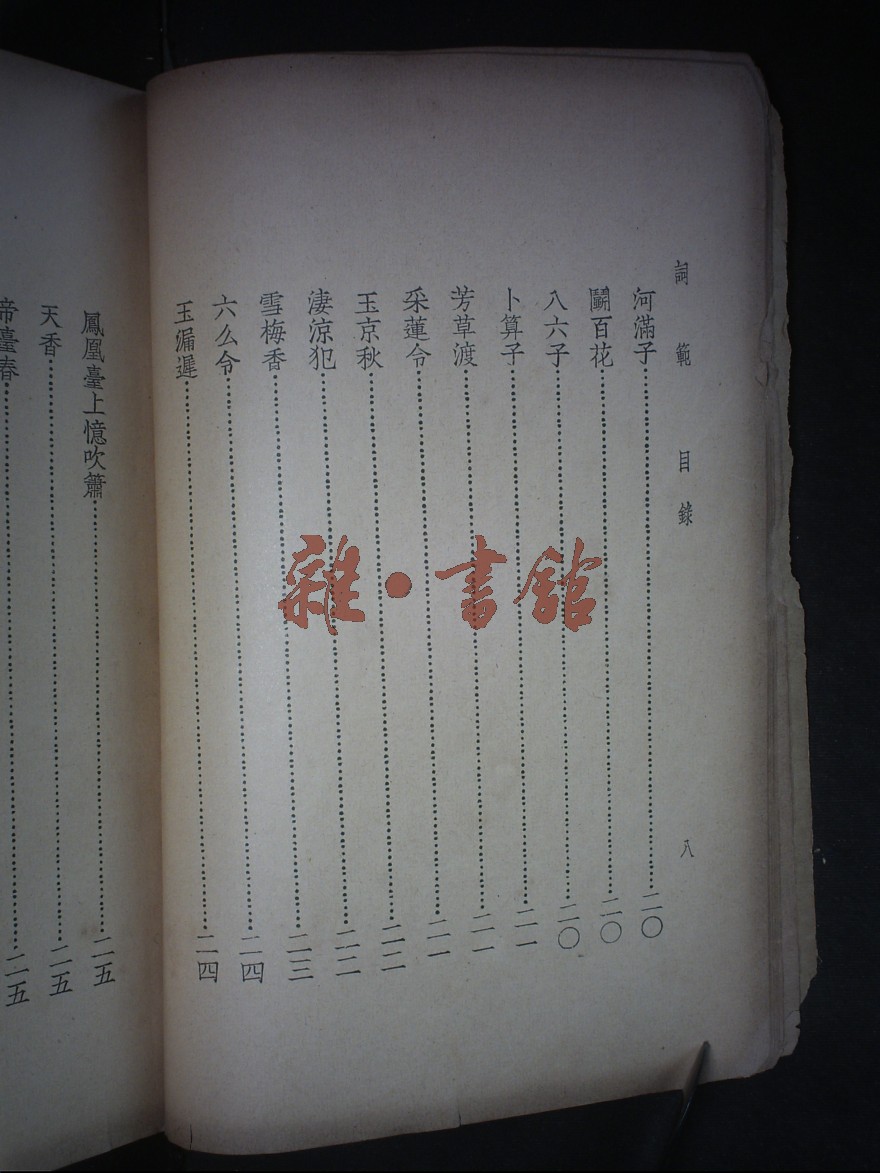 詞範 目錄 八
河滿子……二〇
鬭百花……二〇
八六子……二〇
卜算子……二一
芳草渡……二一
采蓮令……二一
玉京秋……二二
淒涼犯……二二
雪梅香……二三
六么令……二四
玉漏遲……二四
鳳凰臺上憶吹簫……二五
天香……二五
帝臺春……二五
雜·書館